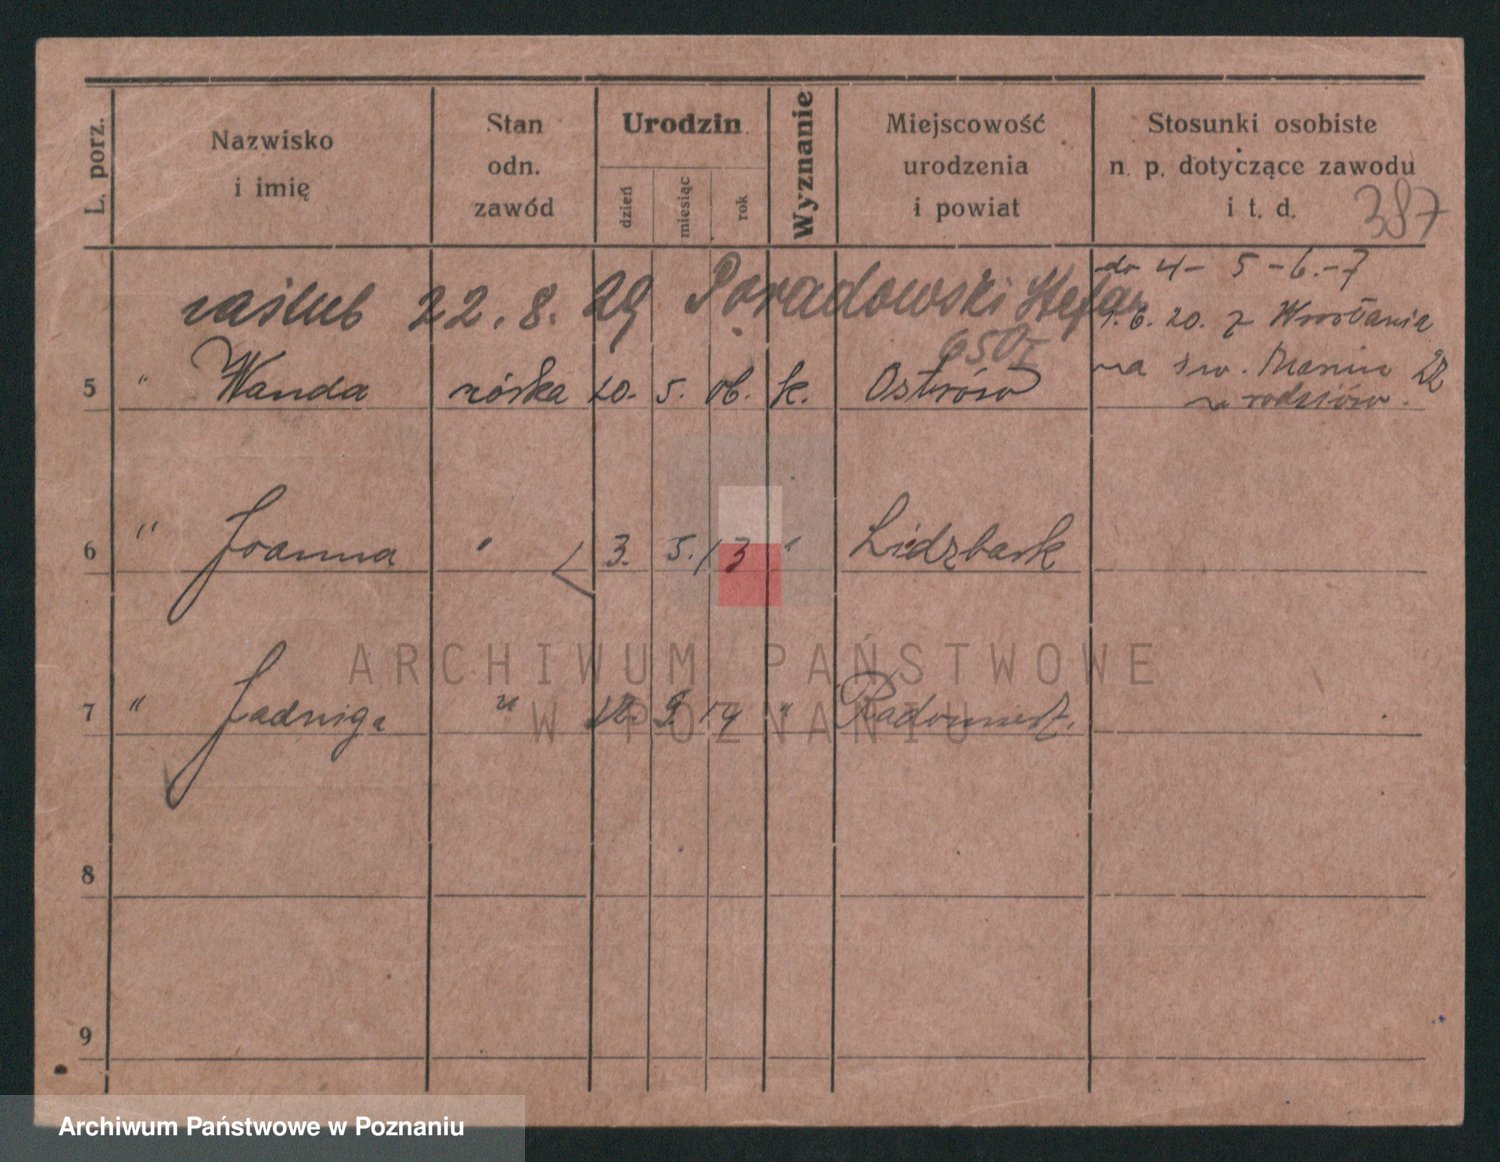 L. porz.
Nazwisko
i imię
Stan
odn.
zawód
Urodzin
dzień
miesiąc
rok
Wyznanie
Miejscowość
urodzenia
i powiat
Stosunki osobiste
n. p. dotyczące zawodu
i t. d.
387
do 4 - 5 - 6. - 7
zaślub 22. 8. 29 Poradowski Stefan
1. 6. 20. z
na św. Marcin 22
650I
5 " Wanda córka 20. 5. 06. k. Ostrów
u rodziców.
6 " Joanna " 3. 5. 13 " Lidzbark
7 " Jadwiga " 12. 9. 14 "
8
9
ARCHIWUM PAŃSTWOWE
W POZNANIU
Archiwum Państwowe w Poznaniu